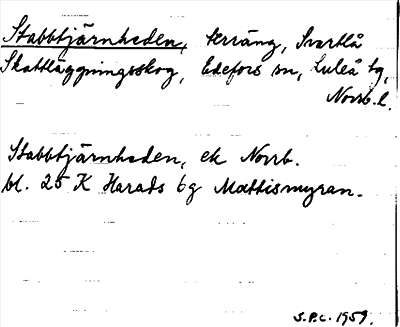 Stabbtjärnheden, terräng, Svartlå
Skattläggningsskog, Edefors sn, Luleå tg,
Norrb.l.
Stabbtjärnheden, ek Norrb.
bl. 25 K Harads bg Mattismyran.
S.P.C. 1959.